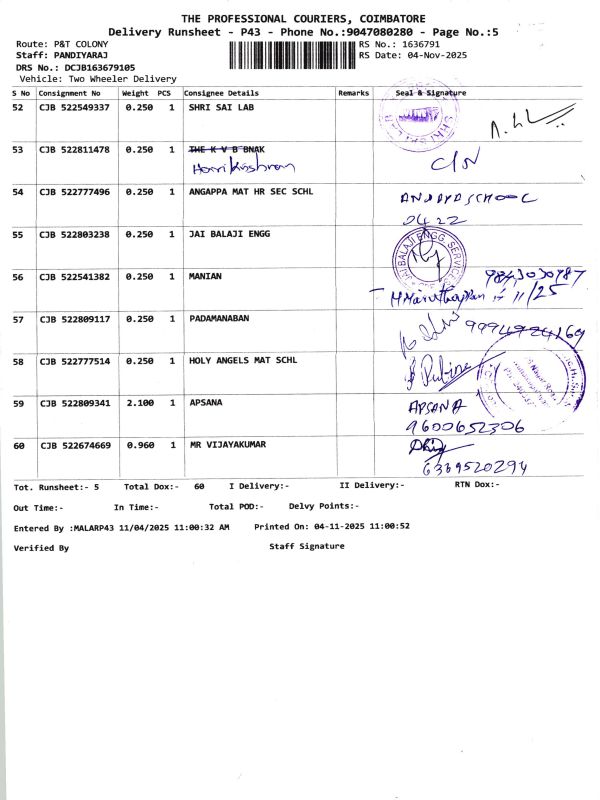 THE PROFESSIONAL COURIERS, COIMBATORE
Delivery Runsheet - P43 - Phone No.:9047080280 - Page No.:5
Route: P&T COLONY RS No.: 1636791
Staff: PANDIYARAJ RS Date: 04-Nov-2025
DRS No.: DCJB163679105
Vehicle: Two Wheeler Delivery
S No Consignment No Weight PCS Consignee Details Remarks Seal & Signature
52 CJB 522549337 0.250 1 SHRI SAI LAB
53 CJB 522811478 0.250 1 THE K V B BNAK
Harikrishnan
54 CJB 522777496 0.250 1 ANGAPPA MAT HR SEC SCHL
0422
55 CJB 522803238 0.250 1 JAI BALAJI ENGG
JAI BALAJI ENGG SERVICES
56 CJB 522541382 0.250 1 MANIAN
57 CJB 522809117 0.250 1 PADAMANABAN
58 CJB 522777514 0.250 1 HOLY ANGELS MAT SCHL
59 CJB 522809341 2.100 1 APSANA APSANA
9600652306
60 CJB 522674669 0.960 1 MR VIJAYAKUMAR
6369520294
Tot. Runsheet:- 5 Total Dox:- 60 I Delivery:- II Delivery:- RTN Dox:-
Out Time:- In Time:- Total POD:- Delvy Points:-
Entered By :MALARP43 11/04/2025 11:00:32 AM Printed On: 04-11-2025 11:00:52
Verified By Staff Signature